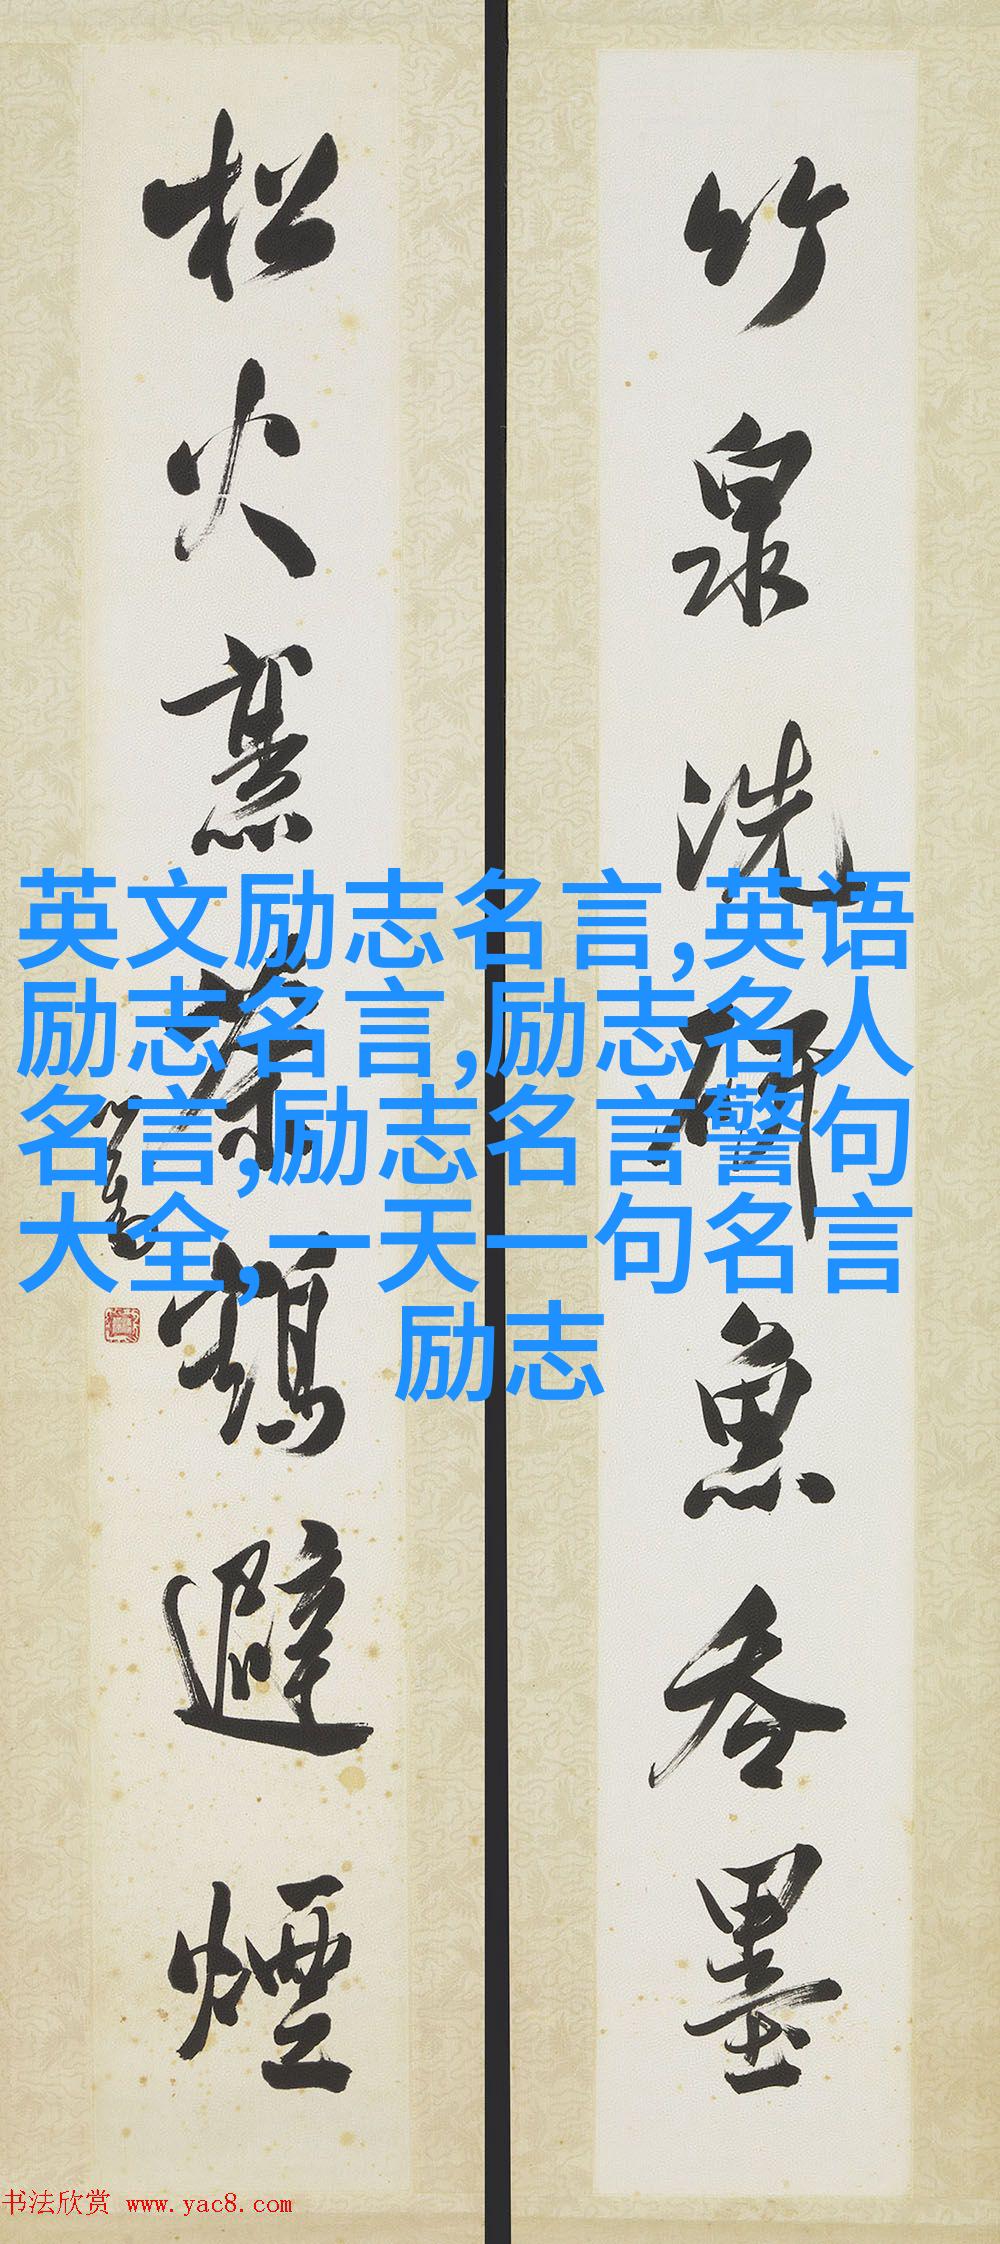 竹泉洗研魚吞墨
松火熏茶鶴避煙
心畬
英文励志名言,英语
励志名言,励志名人
名言,励志名言警句
大全,一天一句名言
励志
书法欣赏 www.yac8.com